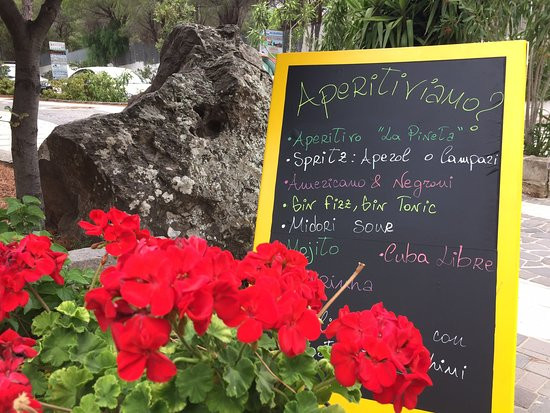 Aperitiviamo?
• Aperitivo "La Pineta"
• Spritz: Aperol o lampazi
• Americano & Negroni
• Gin fizz, Gin Tonic
• Midori soue
Mojito • Cuba Libre
con